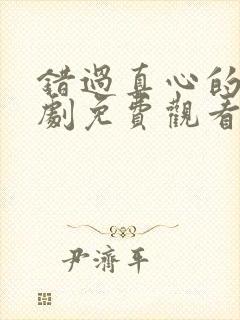 錯過真心的
劇免費觀看
尹濟平